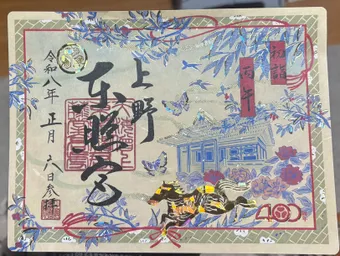 初詣
丙午
上野
東照宮
令和八年正月六日参拝
400